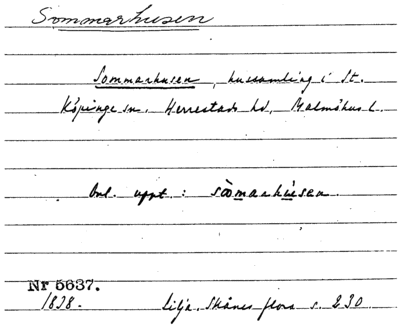 Sommarhusen
Sommarhusen, hussamling i St.
Köpinge sn. Herrestads hd, Malmöhus l.
Enl. uppt : sòmarhúsen.
Nr 5637.
1838. Lilja, Skånes flora s. 230